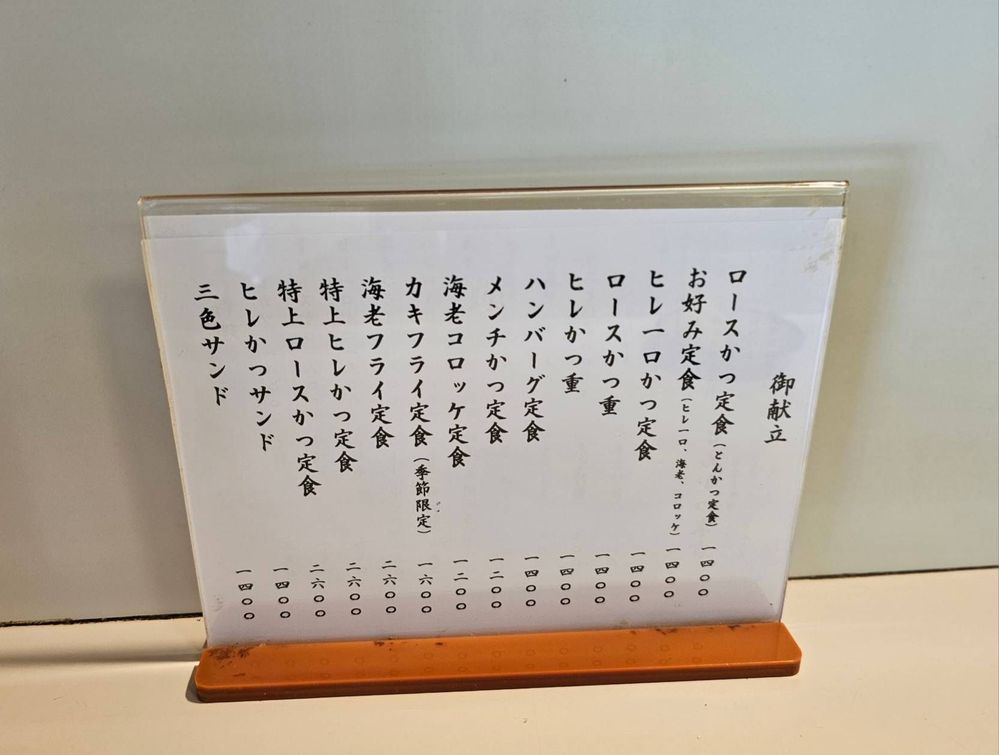 御献立
ロースかつ定食(とんかつ定食) 一四〇〇
お好み定食(ヒレ一口、海老、コロッケ) 一四〇〇
ヒレ一口かつ定食 一四〇〇
ロースかつ重 一四〇〇
ヒレかつ重 一四〇〇
ハンバーグ定食 一四〇〇
メンチかつ定食 一二〇〇
海老コロッケ定食 一二〇〇
カキフライ定食(季節限定) 一六〇〇
海老フライ定食 二六〇〇
特上ヒレかつ定食 二六〇〇
特上ロースかつ定食 二六〇〇
ヒレかつサンド 一四〇〇
三色サンド 一四〇〇